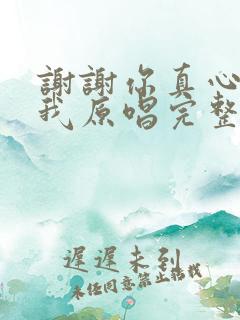 謝謝你真心
我原唱完整
遲遲未到
未经同意禁止搭载